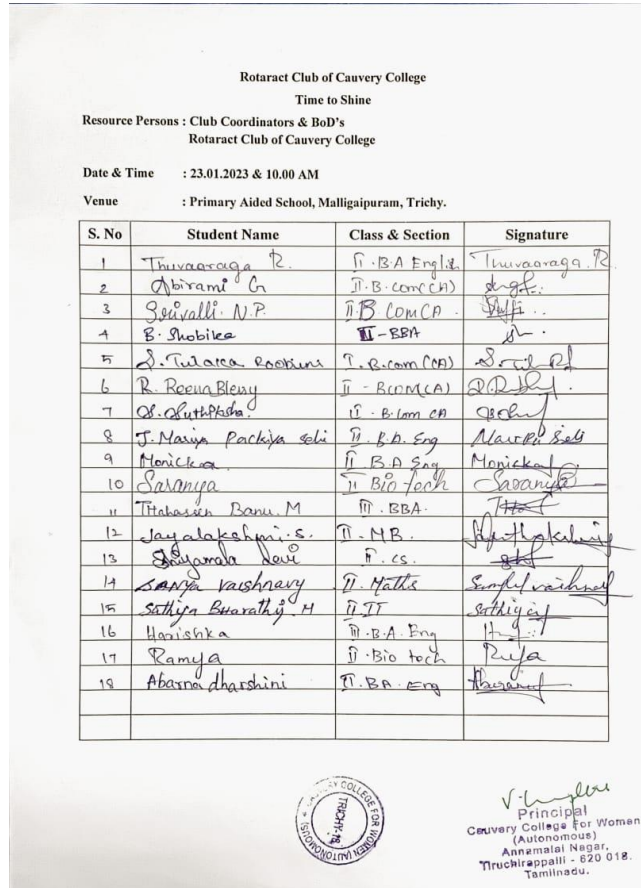 Rotaract Club of Cauvery College
Time to Shine
Resource Persons : Club Coordinators & BoD's
Rotaract Club of Cauvery College
Date & Time : 23.01.2023 & 10.00 AM
Venue : Primary Aided School, Malligaipuram, Trichy.
S. No Student Name Class & Section Signature
1 Thuvaaraga R. II . B.A English Thuvaaraga. R
2 Abirami G II. B. com (CA)
3 N.P. II B COMCA
4 B. Shobika III - BBA
5 S. I. B.com (CA)
6 R. Reena Blessy II - B COM(CA)
7 II - B.Com CA
8 J. Mariya Packiya selvi II. B.A. Eng
9 Monicka II B.A Eng Monicka
10 Saranya II Bio tech Saranya
11 Banu. M III. BBA.
12 Jayalakshmi. S. II - MB.
13 Shiyamala Devi II. CS.
14 SANYA vaishnavy II. Maths
15 Sathiya Bharathi. M II. IT Sathiya
16 Harishka III - B.A. Eng
17 Ramya II . Bio tech
18 Abarna dharshini II. BA. Eng
CAUVERY COLLEGE FOR WOMEN (AUTONOMOUS)
TRICHY-18
Principal
Cauvery College For Women
(Autonomous)
Annamalai Nagar,
Tiruchirappalli - 620 018.
Tamilnadu.